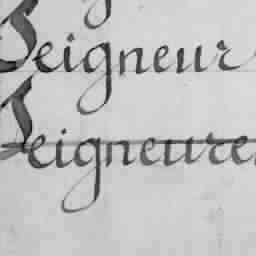 Seigneur
Seigneure